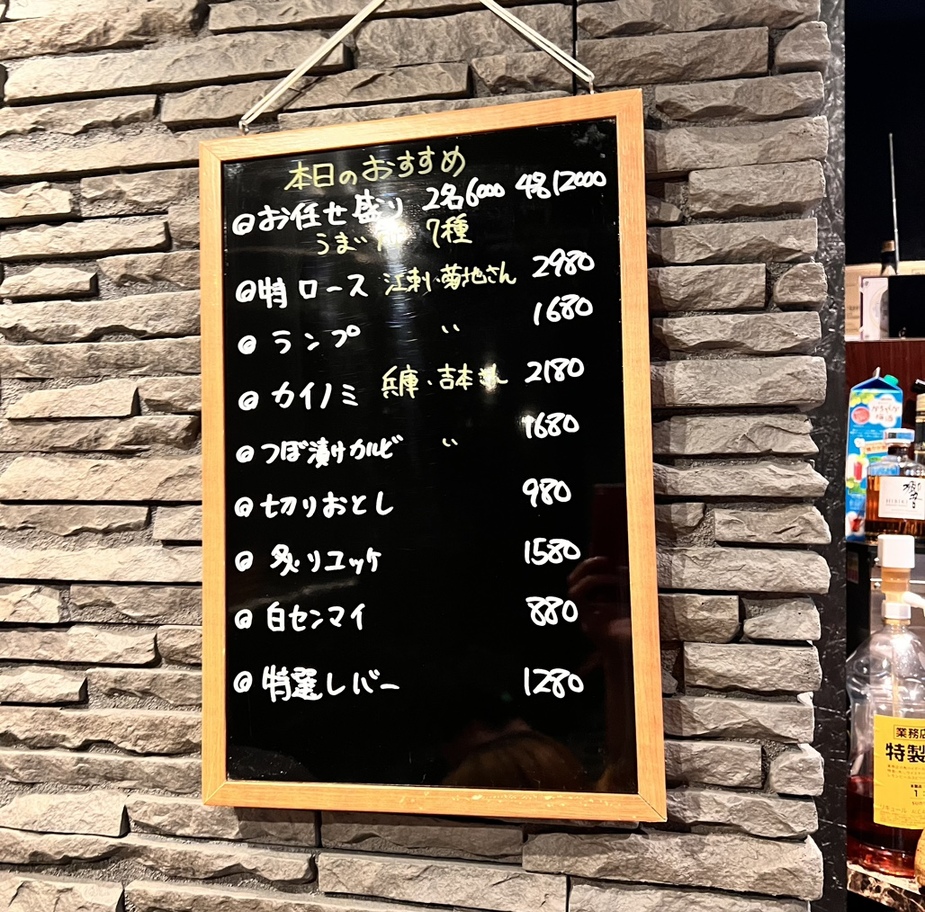 本日のおすすめ
◎お任せ盛り 2名6000 4名12000
うま 7種
◎特 ロース 江刺・菊地さん 2980
◎ ランプ 〃 1680
◎ カイノミ 兵庫・吉本 2180
◎つぼ漬けカルビ 〃 1680
◎切りおとし 980
◎ 炙りユッケ 1580
◎ 白センマイ 880
◎特選レバー 1280
業務店
特製